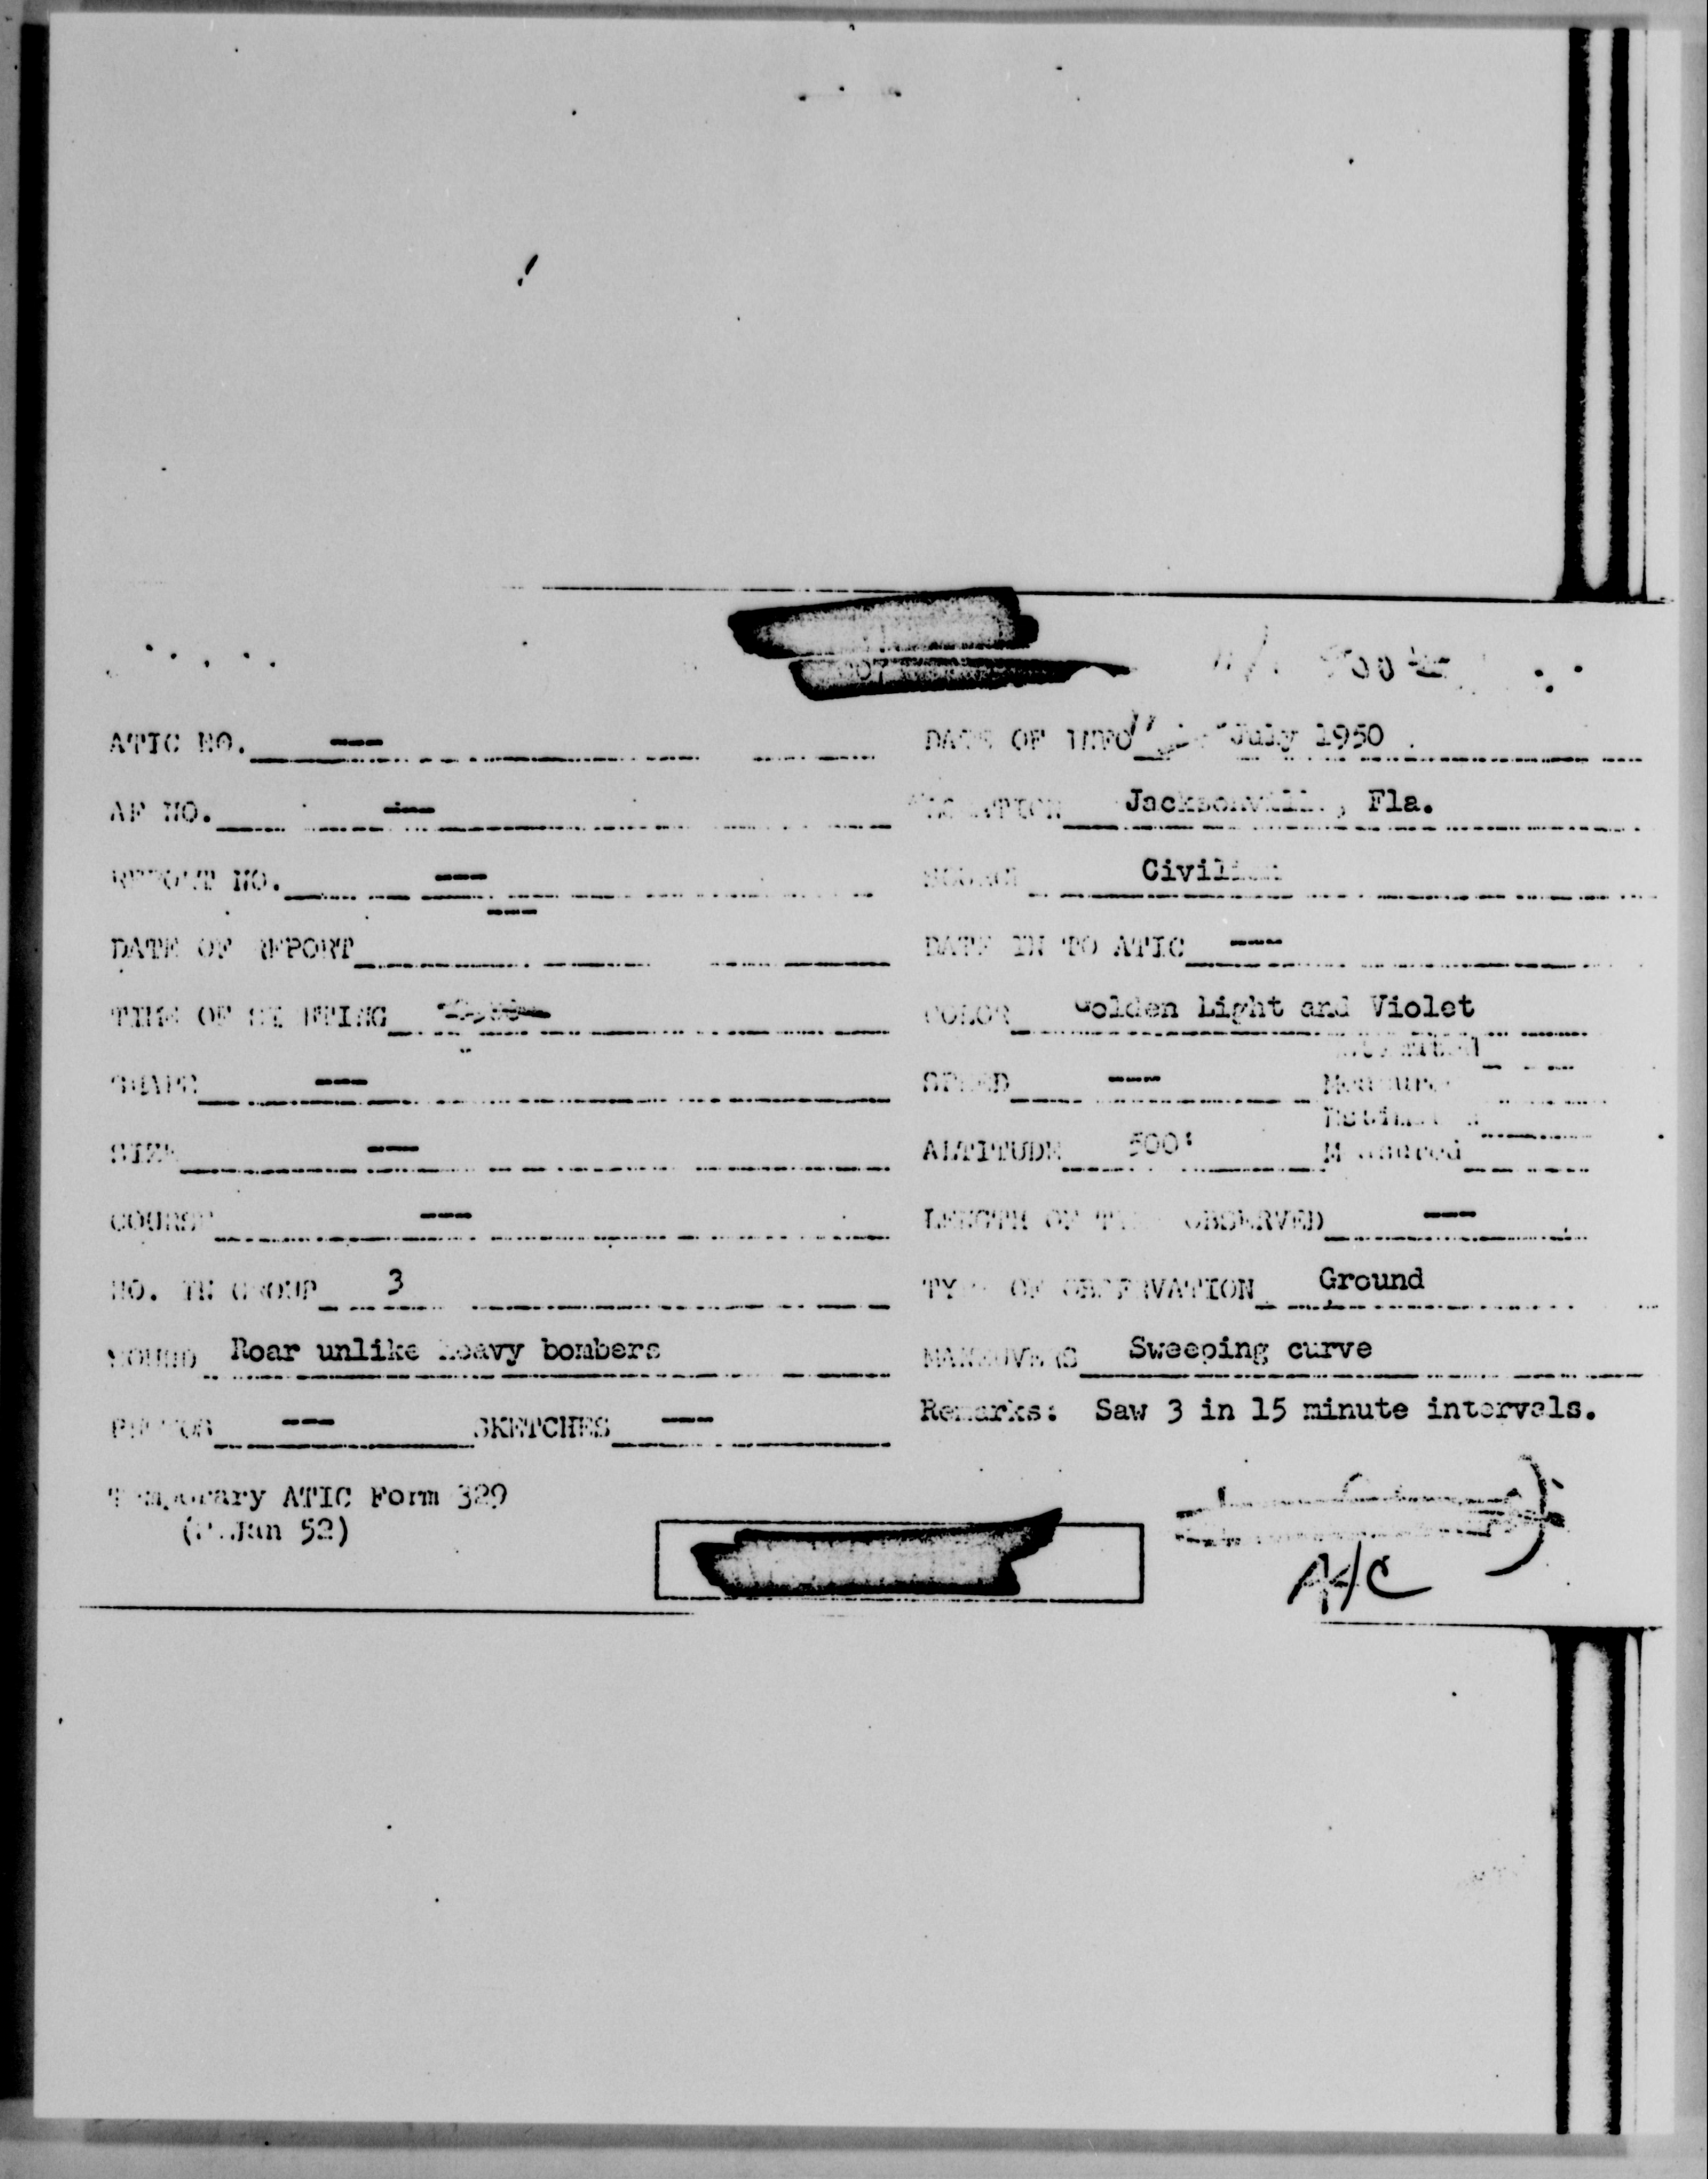 ATIC NO. --- DATE OF INFO July 1950
AF NO. --- LOCATION Jacksonville, Fla.
REPORT NO. --- SOURCE Civilian
DATE OF REPORT --- DATE IN TO ATIC ---
TIME OF SIGHTING COLOR Golden Light and Violet
SHAPE --- SPEED --- Estimated
Measured
SIZE --- ALTITUDE 500' Estimated
Measured
COURSE --- LENGTH OF TIME OBSERVED ---
NO. IN GROUP 3 TYPE OF OBSERVATION Ground
SOUND Roar unlike heavy bombers MANEUVERS Sweeping curve
PHOTOS --- SKETCHES --- Remarks: Saw 3 in 15 minute intervals.
Temporary ATIC Form 329
Jan 52)
A/C